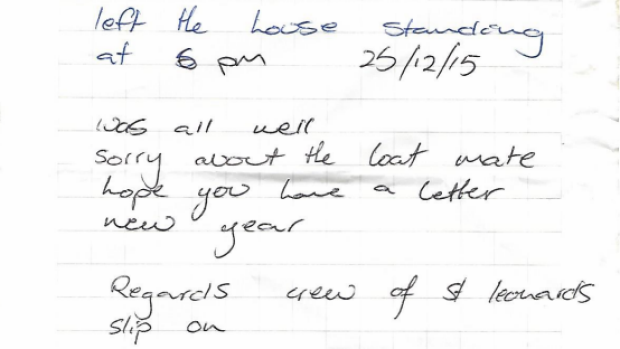 left the house standing
at 6 pm 25/12/15
was all well
sorry about the boat mate
hope you have a better
new year
Regards crew of St leonards
slip on